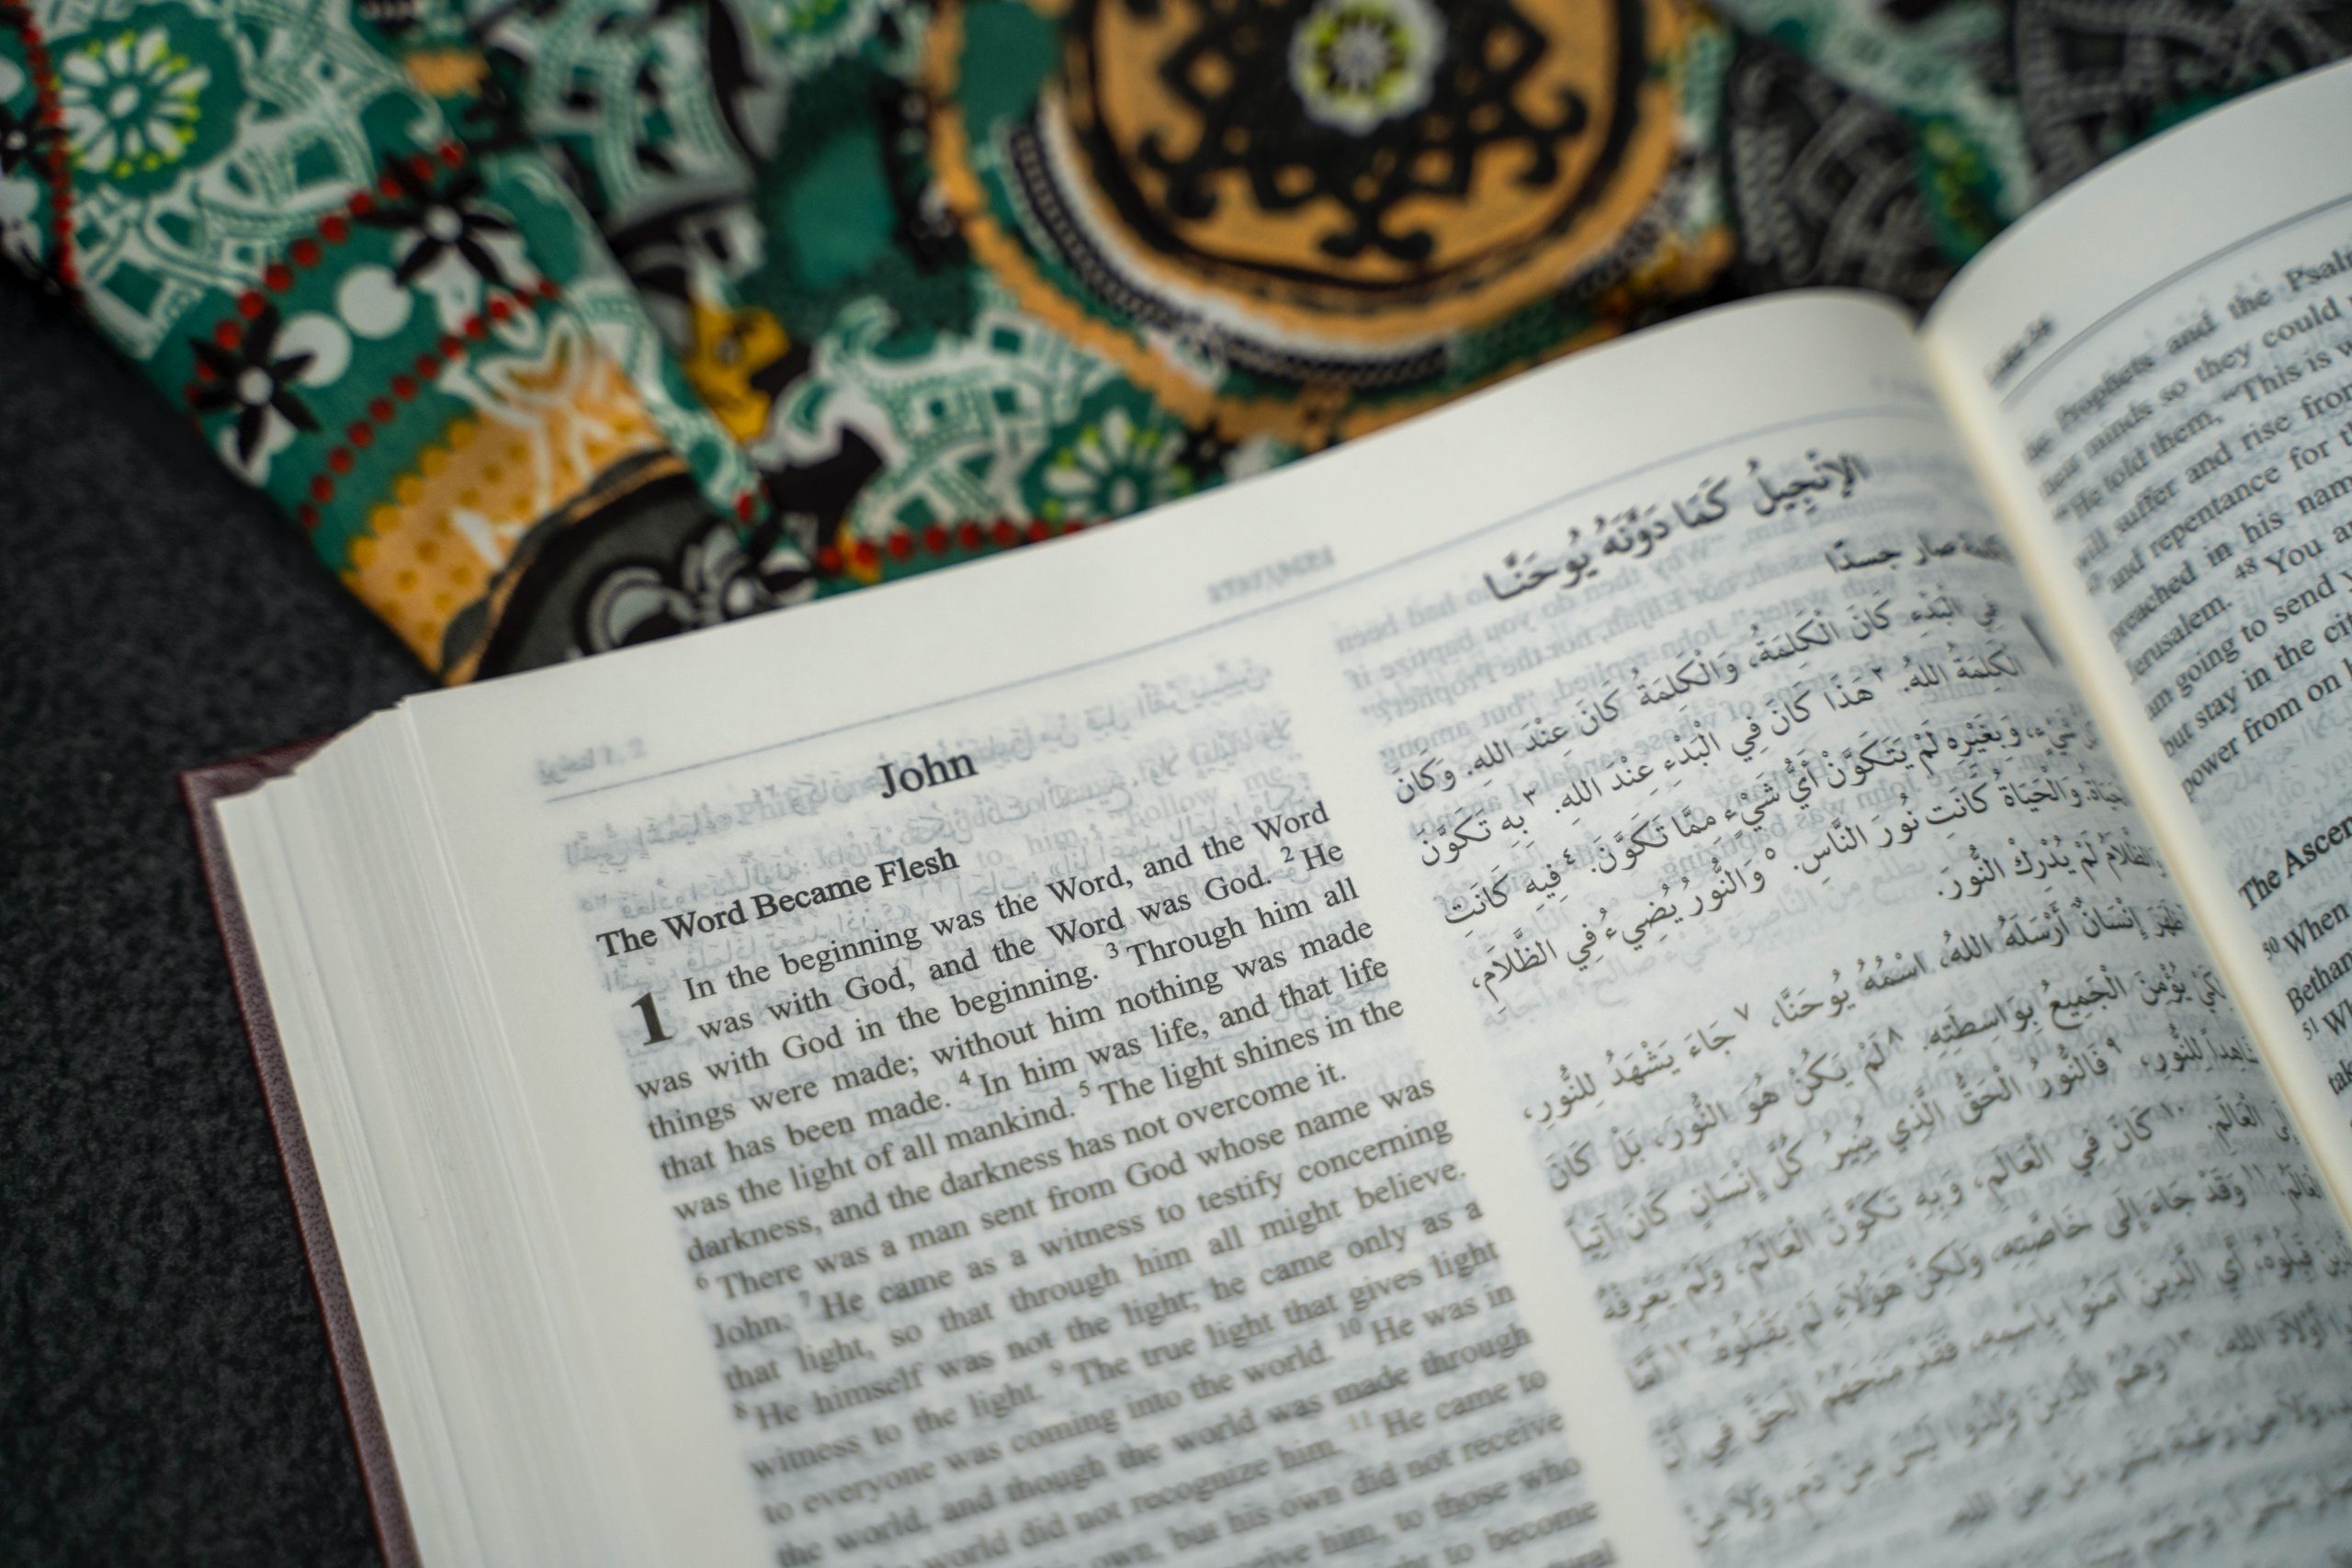 John
The Word Became Flesh
1 In the beginning was the Word, and the Word
was with God, and the Word was God. 2 He
was with God in the beginning. 3 Through him all
things were made; without him nothing was made
that has been made. 4 In him was life, and that life
was the light of all mankind. 5 The light shines in the
darkness, and the darkness has not overcome it.
6 There was a man sent from God whose name was
John. 7 He came as a witness to testify concerning
that light, so that through him all might believe.
8 He himself was not the light; he came only as a
witness to the light. 9 The true light that gives light
to everyone was coming into the world. 10 He was in
the world, and though the world was made through
world did not recognize him. 11 He came to
own, but his own did not receive
him, to those who
to become
الإنجيل كَمَا دَوَّنَهُ يُوحَنَّا
صار جسدًا
فِي الْبَدْءِ كَانَ الْكَلِمَةُ، وَالْكَلِمَةُ كَانَ عِنْدَ اللهِ. وَكَانَ
الْكَلِمَةُ اللهُ. ٢ هَذَا كَانَ فِي الْبَدْءِ عِنْدَ اللهِ. ٣ بِهِ تَكَوَّنَ
شَيْءٍ، وَبِغَيْرِهِ لَمْ يَتَكَوَّنْ أَيُّ شَيْءٍ مِمَّا تَكَوَّنَ. ٤ فِيهِ كَانَتِ
وَالْحَيَاةُ كَانَتِ نُورَ النَّاسِ. ٥ وَالنُّورُ يُضِيءُ فِي الظَّلَامِ،
وَالظَّلَامُ لَمْ يُدْرِكْ النُّورَ.
ظَهَرَ إِنْسَانٌ أَرْسَلَهُ اللهُ، اسْمُهُ يُوحَنَّا، ٧ جَاءَ يَشْهَدُ لِلنُّورِ،
يُؤْمِنَ الْجَمِيعُ بِوَاسِطَتِهِ. ٨ لَمْ يَكُنْ هُوَ النُّورَ، بَلْ كَانَ
لِلنُّورِ، ٩ فَالنُّورُ الْحَقُّ الَّذِي يُنِيرُ كُلَّ إِنْسَانٍ كَانَ آتِياً
الْعَالَمِ. ١٠ كَانَ فِي الْعَالَمِ، وَبِهِ تَكَوَّنَ الْعَالَمُ، وَلَمْ يَعْرِفْهُ
١١ وَقَدْ جَاءَ إِلَى خَاصَّتِهِ، وَلَكِنْ هَؤُلَاءِ لَمْ يَقْبَلُوهُ. ١٢ أَمَّا
قَبِلُوهُ، أَيِ الَّذِينَ آمَنُوا بِاسْمِهِ، فَقَدْ مَنَحَهُمُ الْحَقَّ فِي أَنْ
أَوْلَادَ اللهِ، ١٣ وَهُمُ الَّذِينَ وُلِدُوا لَيْسَ مِنْ دَمٍ، وَلَا مِنْ
Prophets and the
minds so they could
He told them, "This is
will suffer and rise
and repentance for
preached in his
Jerusalem. 48 You
going to send
but stay in the
power from on
The
50 When
51